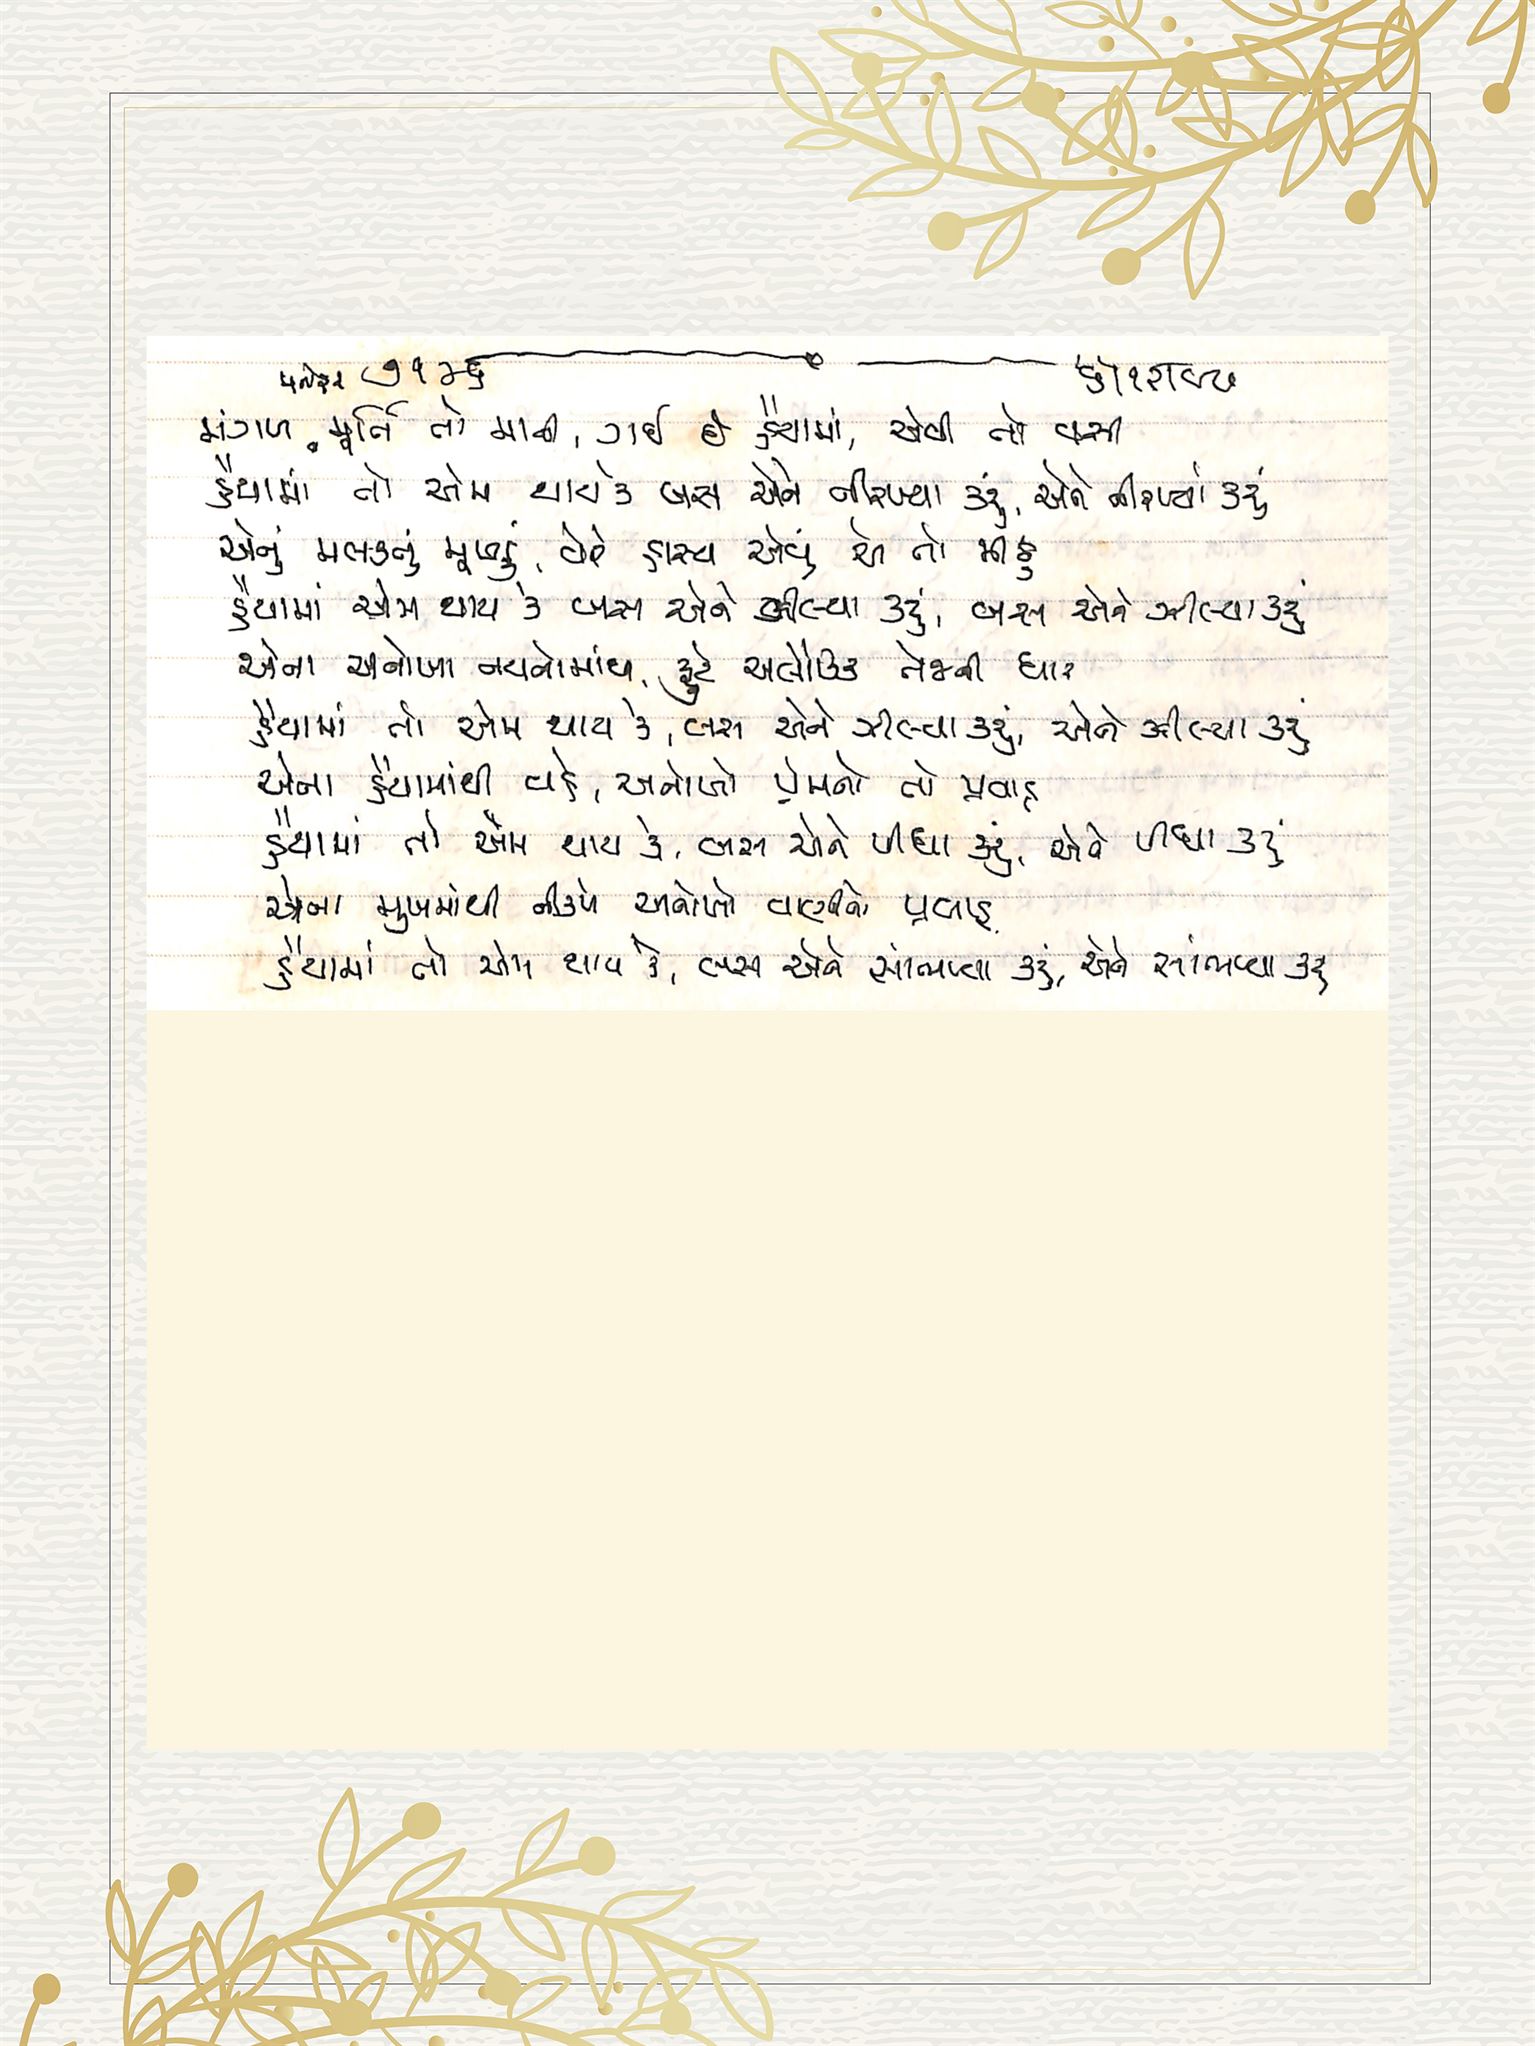 મંગળ મૂર્તિ તો માની, ગઈ છે હૈયામાં, એવી તો વસી
હૈયામાં તો એમ થાય કે બસ એને નીરખ્યા કરું, એને નીરખ્યા કરું
એનું મલકનું મૂખડું, વેરે હાસ્ય એવું એ તો મીઠું
હૈયામાં એમ થાય કે બસ એને ઝીલ્યા કરું, બસ એને ઝીલ્યા કરું
એના અનોખા નયનોમાંથી, ફુટે અલૌકિક તેજની ધાર
હૈયામાં તો એમ થાય કે, બસ એને ઝીલ્યા કરું, એને ઝીલ્યા કરું
એના હૈયામાંથી વહે, અનોખો પ્રેમનો તો પ્રવાહ
હૈયામાં તો એમ થાય કે, બસ એને પીધા કરું, એને પીધા કરું
એના મુખમાંથી નીકળે અનોખો વાણીનો પ્રવાહ
હૈયામાં તો એમ થાય કે, બસ એને સાંભળ્યા કરું, એને સાંભળ્યા કરું